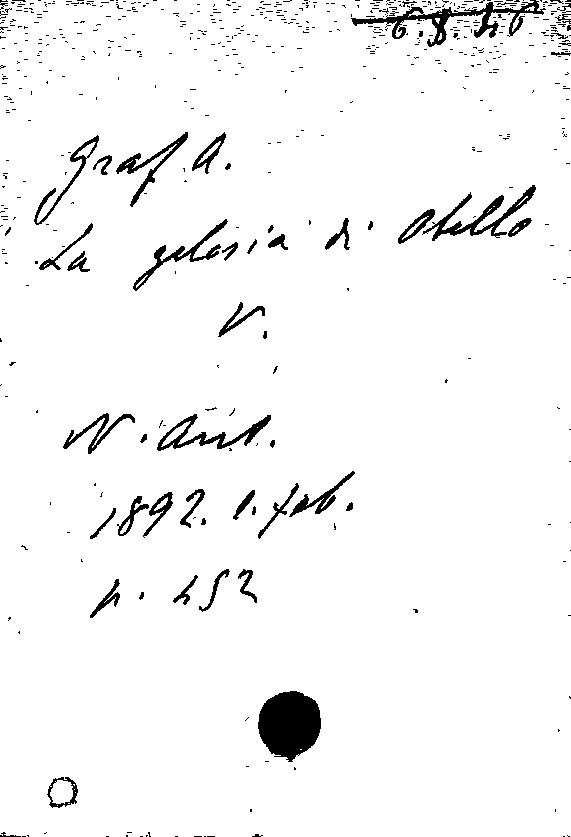 6.8.46
Graf A.
La gelosia di Otello
V.
N. Ant.
1892. 1. feb.
p. 452